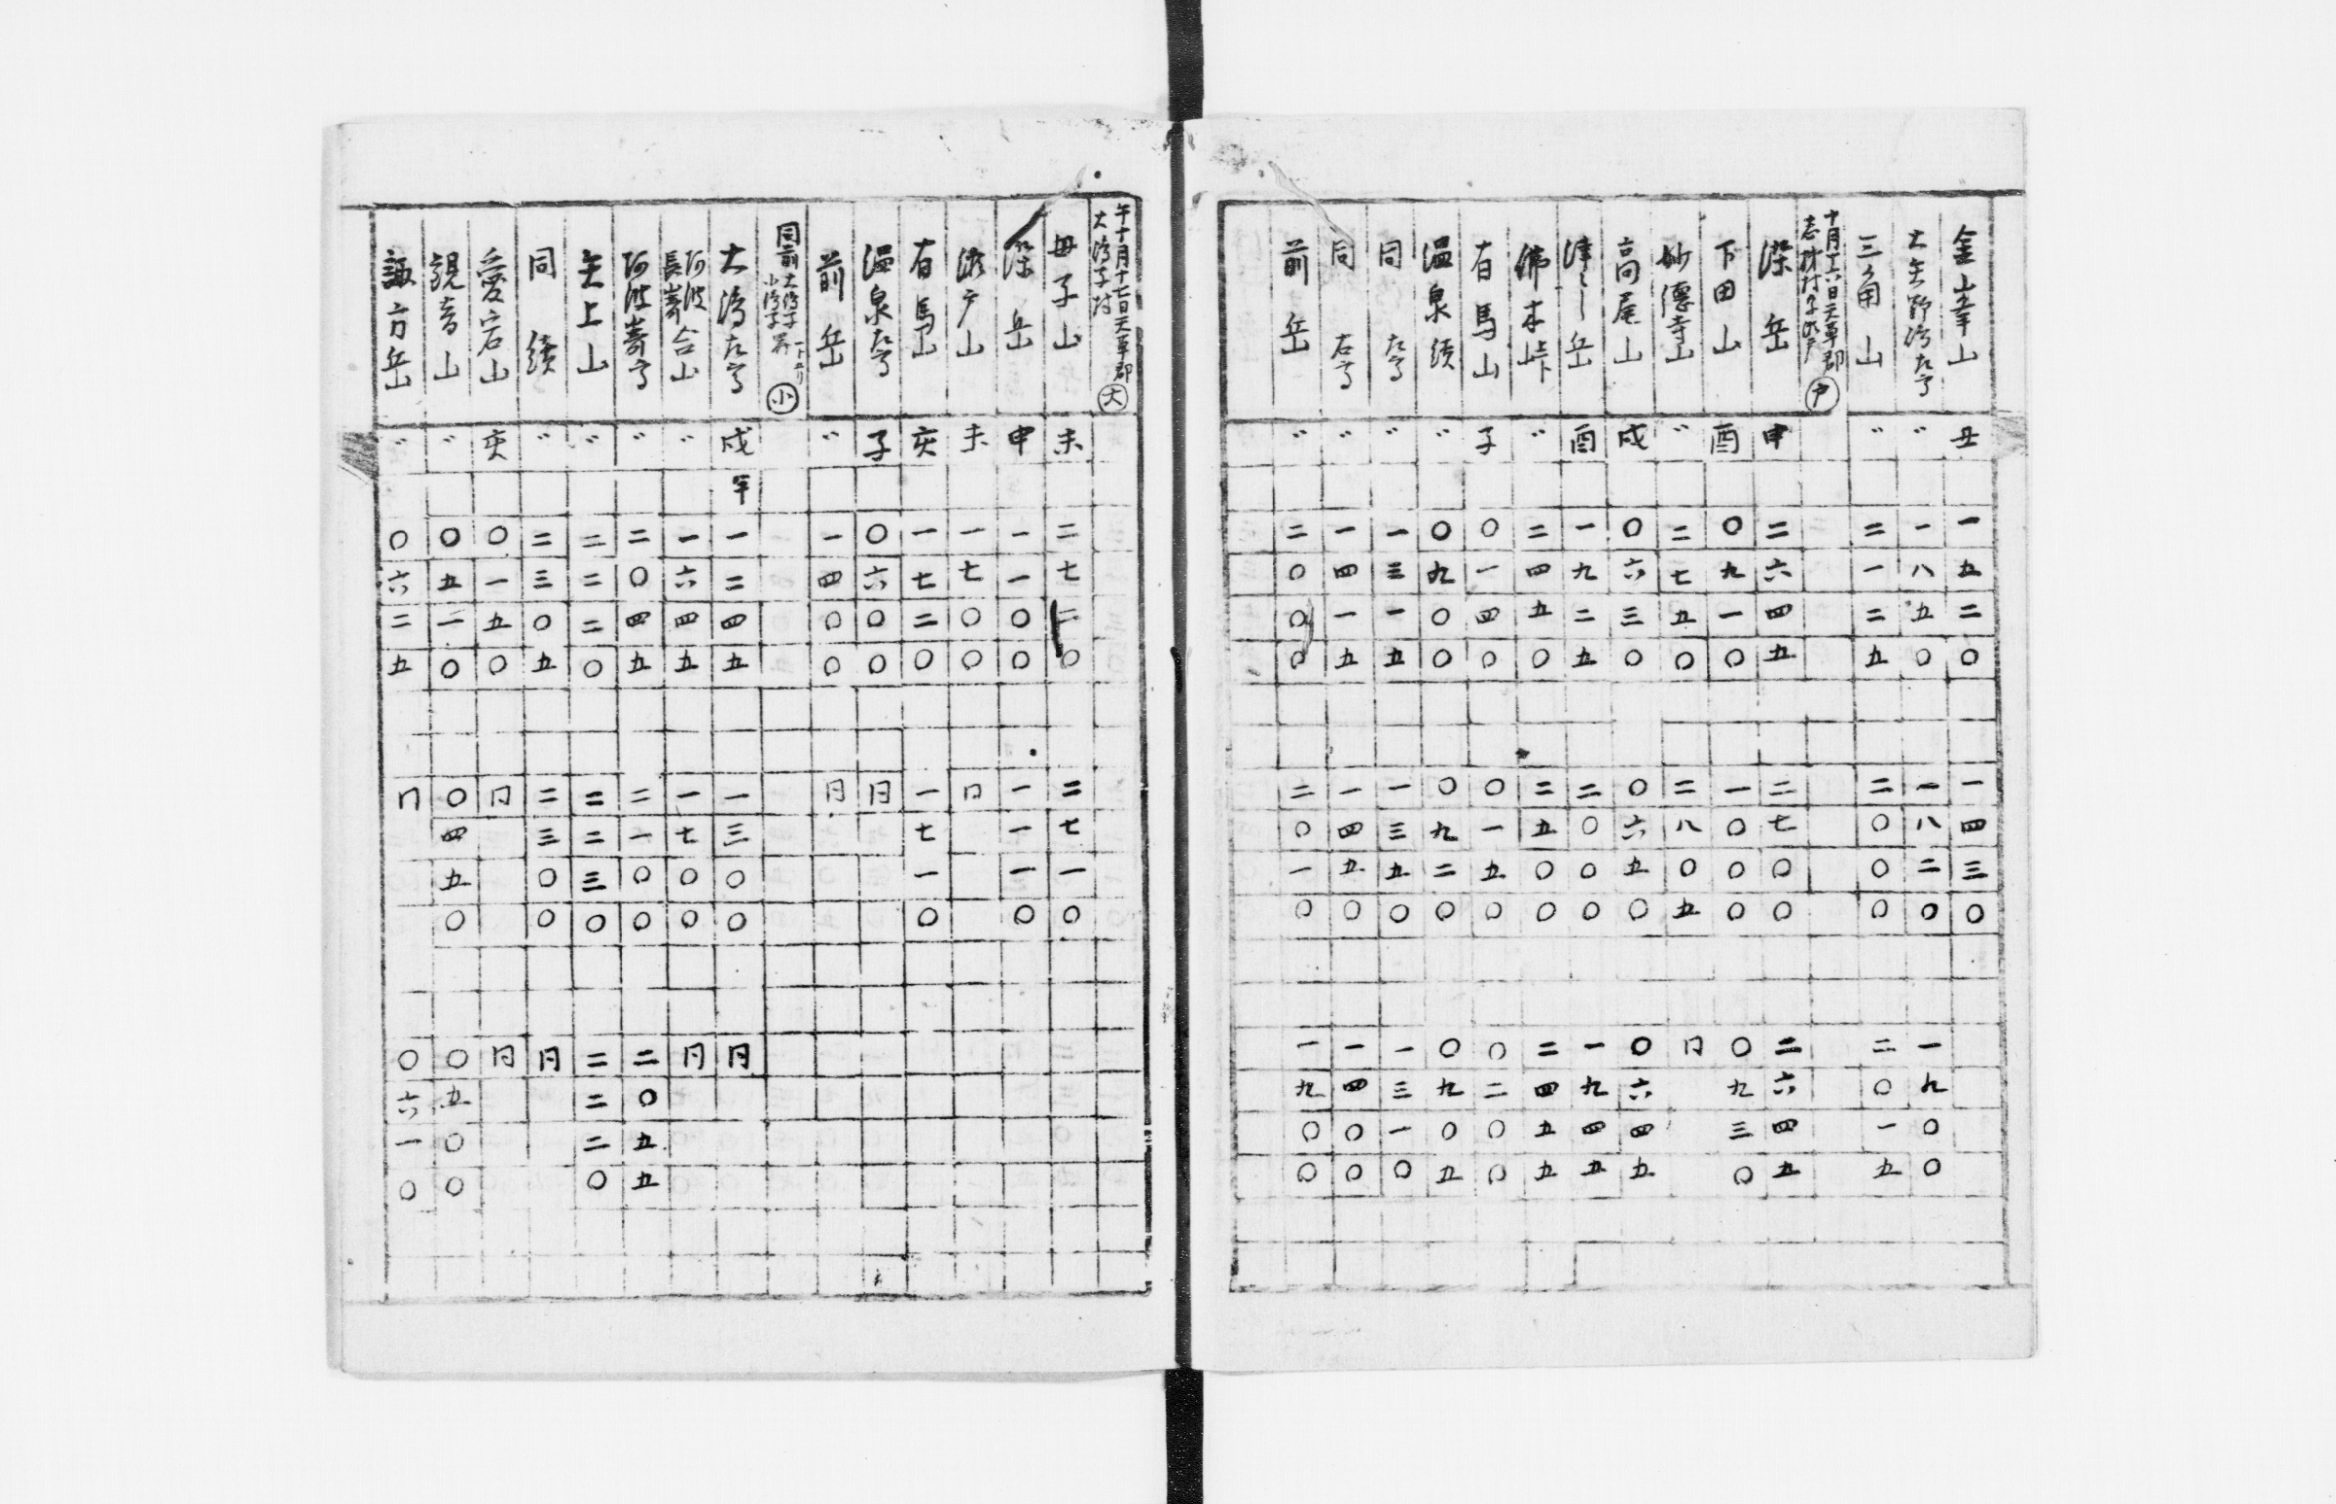 金峯山 丑 一五二〇 一四三〇
大矢野嶋左寄 〃 一八五〇 一八二〇 一九〇〇
三角山 〃 二一二五 二〇〇〇 二〇一五
十月十六日天草郡
志柿村 戸
染岳 申 二六四五 二七〇〇 二六四五
下田山 酉 〇九一〇 一〇〇〇 〇九三〇
妙徳寺山 〃 二七五〇 二八〇五 同
高尾山 戌 〇六三〇 〇六五〇 〇六四五
岳 酉 一九二五 二〇〇〇 一九四五
佛木峠 〃 二四五〇 二五〇〇 二四五五
有馬山 子 〇一四〇 〇一五〇 〇二〇〇
温泉頂 〃 〇九〇〇 〇九二〇 〇九〇五
同 左寄 〃 一三一五 一三五〇 一三一〇
同 右寄 〃 一四一五 一四五〇 一四〇〇
前岳 〃 二〇〇〇 二〇一〇 一九〇〇
午十月十七日天草郡
大嶋子村 大
母子山 未 二七二〇 二七一〇
染岳 申 一一〇〇 一一一〇
瀬戸山 未 一七〇〇 同
有馬山 亥 一七二〇 一七一〇
温泉左寄 子 〇六〇〇 同
前岳 〃 一四〇〇 同
同前 大嶋子
小嶋子界 小
大嶋左寄 戌 一二四五 一三〇〇 同
阿波
長嵜 合山 〃 一六四五 一七〇〇 同
阿波嵜寄 〃 二〇四五 二一〇〇 二〇五五
矢上山 〃 二二二〇 二二三〇 二二二〇
同 續 〃 二三〇五 二三〇〇 同
愛宕山 亥 〇一五〇 同 同
観音山 〃 〇五一〇 〇四五〇 〇五〇〇
諏方岳 〃 〇六二五 同 〇六一〇